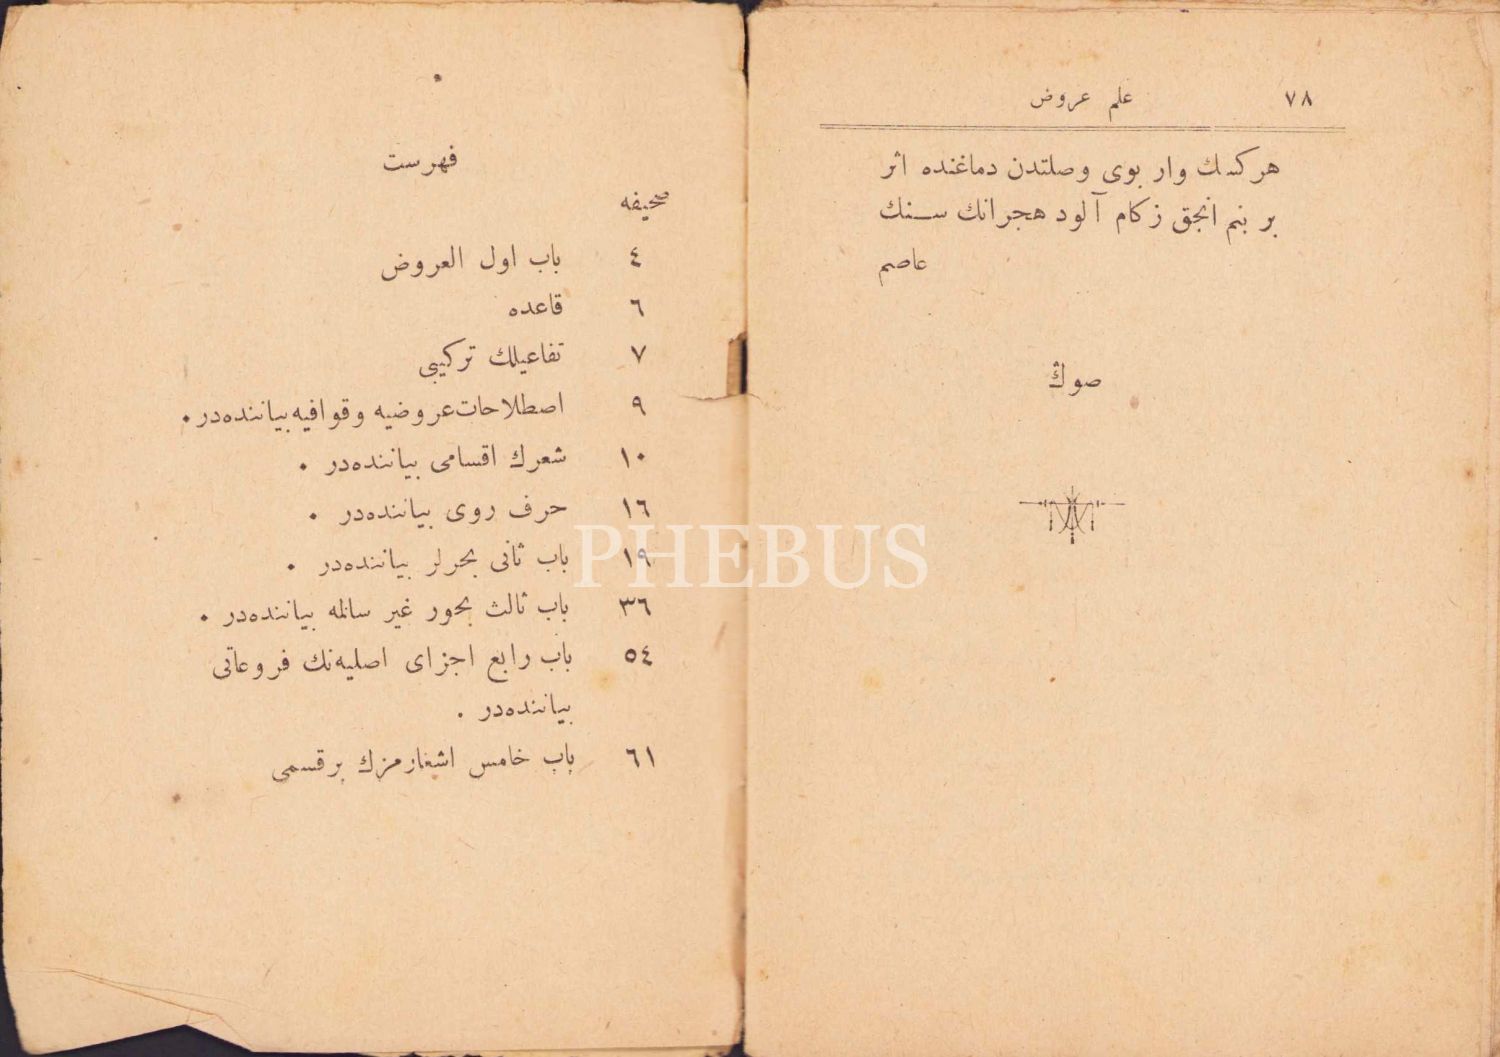 علم عروض ٧٨
هركسك وار بوى وصلتدن دماغنده اثر
بر بنم انجق زكام آلود هجرانك سنك
عاصم
صوڭ
فهرست
صحيفه
٤ باب اول العروض
٦ قاعده
٧ تفاعيلك تركيبى
٩ اصطلاحات عروضيه وقوافيه بياننده‌در.
١٠ شعرك اقسامى بياننده‌در .
١٦ حرف روى بياننده‌در .
١٩ باب ثانى بحرلر بياننده‌در .
٣٦ باب ثالث بحور غير سالمه بياننده‌در .
٥٤ باب رابع اجزاى اصليه‌نك فروعاتى
بياننده‌در .
٦١ باب خامس اشعارمزك برقسمى
PHEBUS